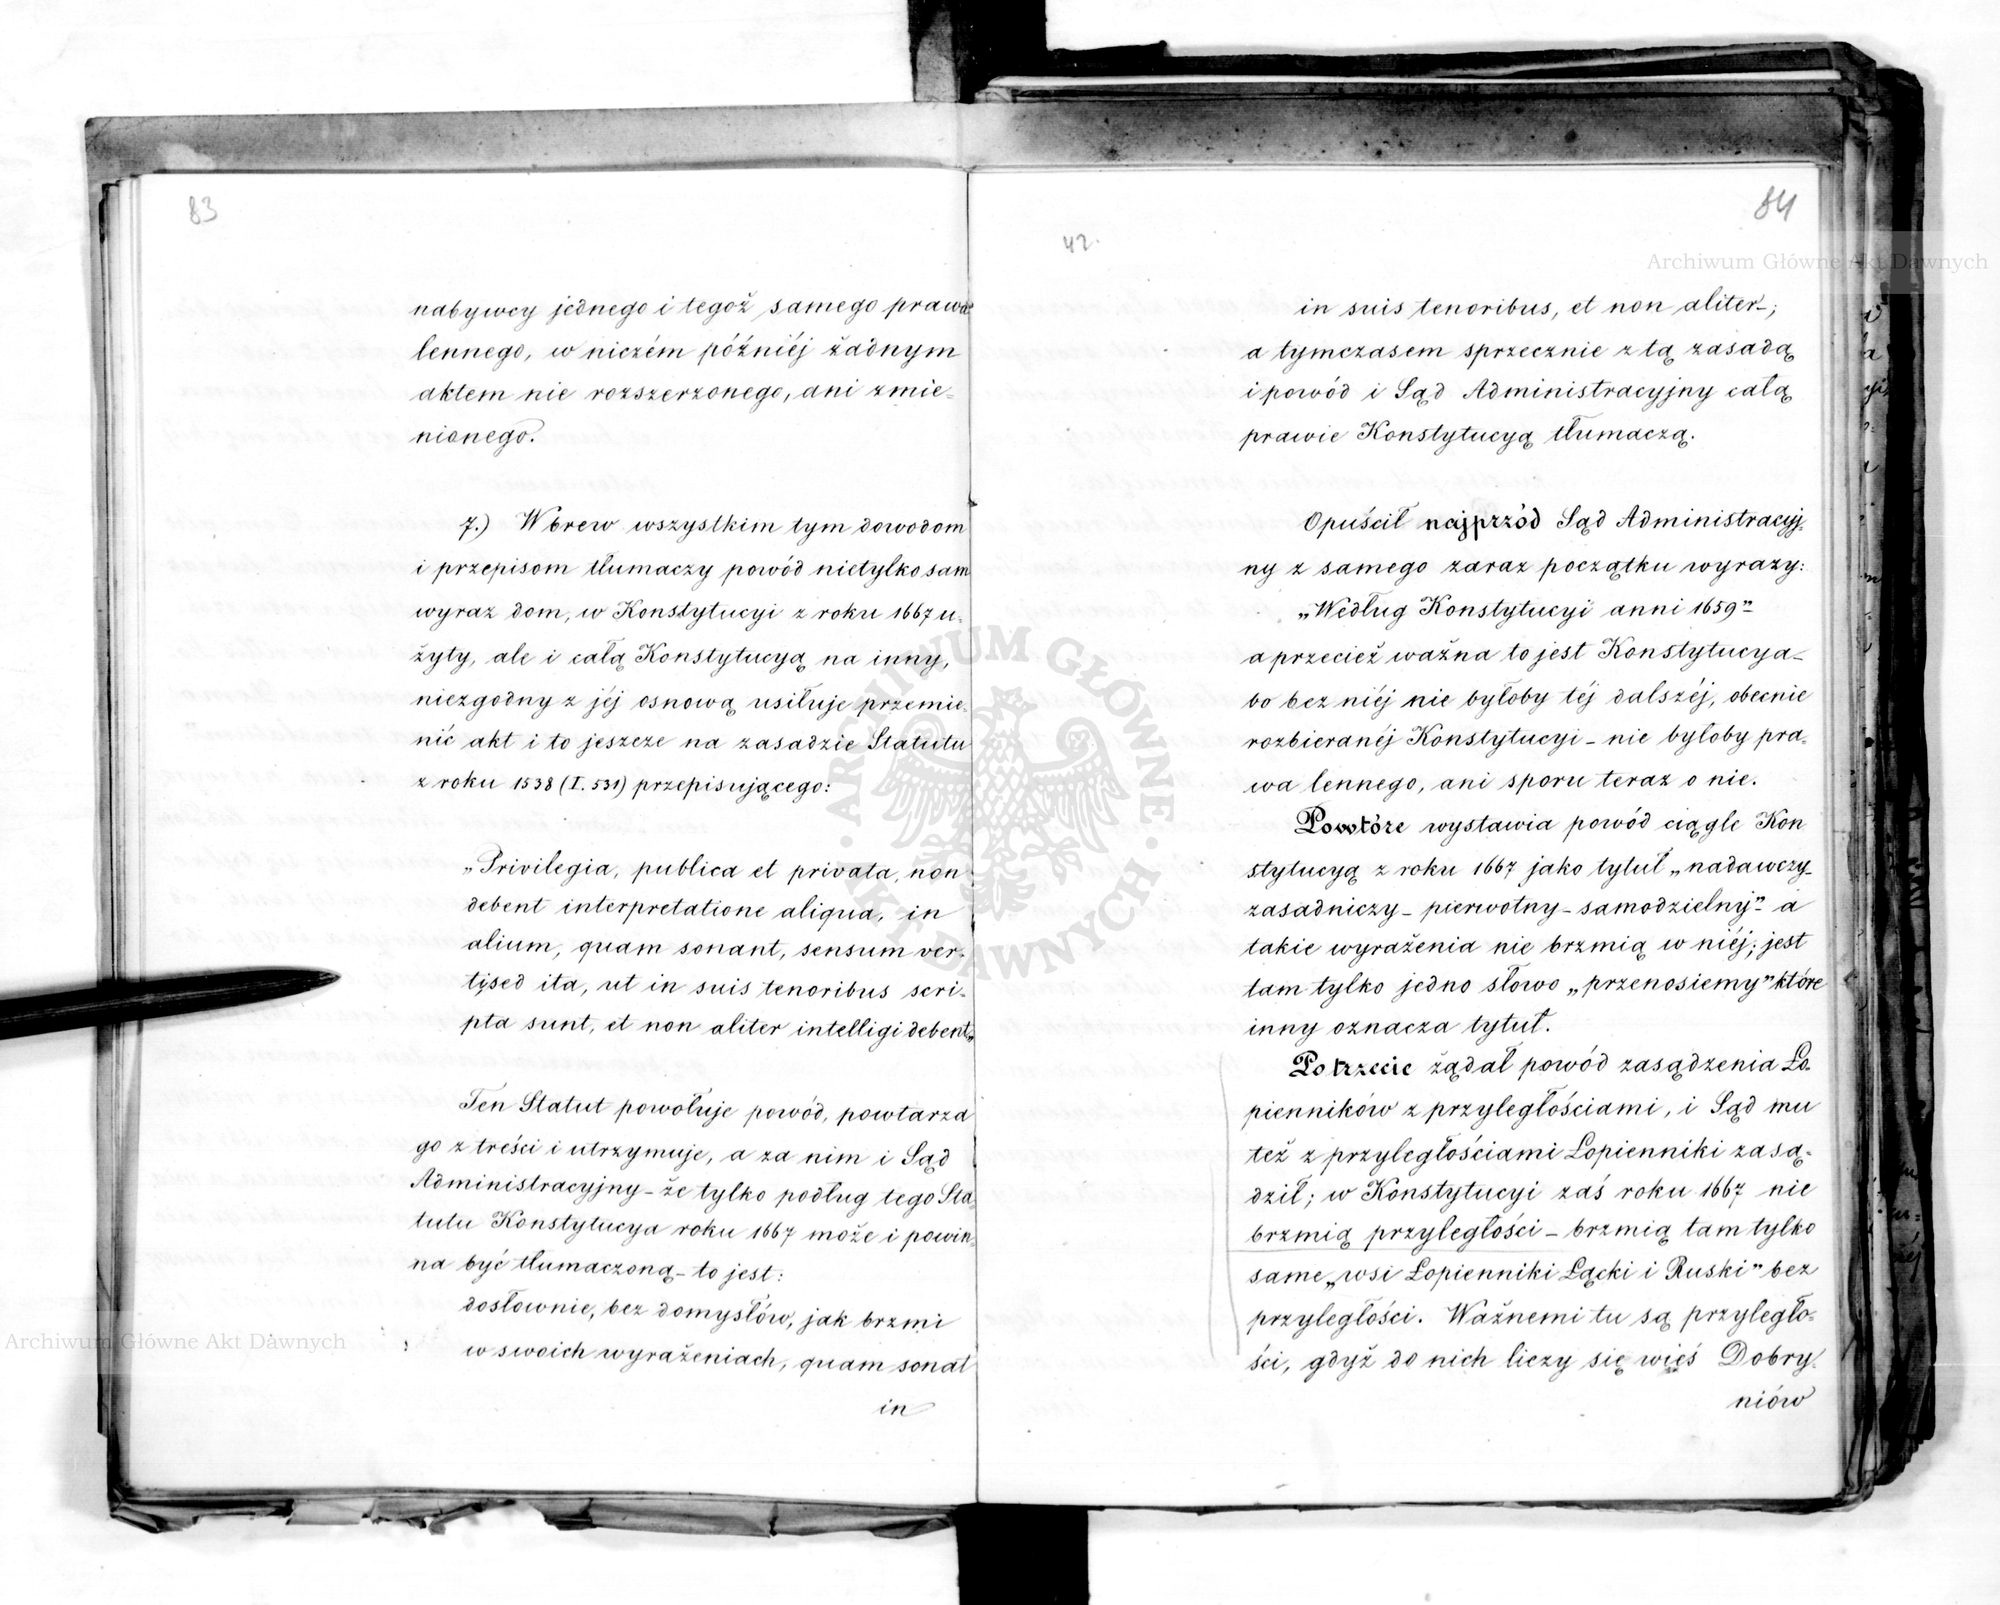 83
nabywcy jednego i tegoż samego prawa
lennego, w niczém późniéj żadnym
aktem nie rozszerzonego, ani zmie-
nionego.
7.) Wbrew wszystkim tym dowodom
i przepisom tłumaczy powód nietylko sam
wyraz dom, w Konstytucyi z roku 1667 u-
żyty, ale i całą Konstytucyą na inny,
niezgodny z jéj osnową usiłuje przemie-
nić akt i to jeszcze na zasadzie Statutu
z roku 1538 (I. 531) przepisującego:
„Privilegia, publica et privata, non
debent interpretatione aliqua, in
alium, quam sonant, sensum ver-
ti, sed ita, ut in suis tenoribus scri-
pta sunt, et non aliter intelligi debent„
Ten Statut powołuje powód, powtarza
go z treści i utrzymuje, a za nim i Sąd
Administracyjny – że tylko podług tego Sta-
tutu Konstytucya roku 1667 może i powin-
na być tłumaczoną – to jest:
dosłownie, bez domysłów, jak brzmi
w swoich wyrażeniach, quam sonat
in
84
42.
in suis tenoribus, et non aliter –;
a tymczasem sprzecznie z tą zasadą
i powód i Sąd Administracyjny całą
prawie Konstytucyą tłumaczą.
Opuścił najprzód Sąd Administracyj-
ny z samego zaraz początku wyrazy:
„Według Konstytucyi anni 1659”
a przecież ważna to jest Konstytucya –
bo bez niéj nie byłoby téj dalszéj, obecnie
rozbieranéj Konstytucyi – nie byłoby pra-
wa lennego, ani sporu teraz o nie.
Powtóre wystawia powód ciągle Kon
stytucyą z roku 1667 jako tytuł „nadawczy –
zasadniczy – pierwotny – samodzielny” a
takie wyrażenia nie brzmią w niéj; jest
tam tylko jedno słowo „przenosiemy” które
inny oznacza tytuł.
Potrzecie żądał powód zasądzenia Ło-
pienników z przyległościami, i Sąd mu
też z przyległościami Łopienniki zasą-
dził; w Konstytucyi zaś roku 1667 nie
brzmią przyległości – brzmią tam tylko
same „wsi Łopienniki Łącki i Ruski” bez
przyległości. Ważnemi tu są przyległo-
ści, gdyż do nich liczy się wieś Dobry-
niów
Archiwum Główne Akt Dawnych
Archiwum Główne Akt Dawnych
ARCHIWUM GŁÓWNE AKT DAWNYCH